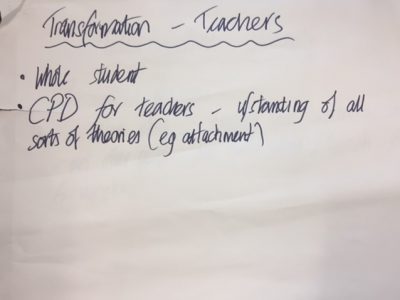 Transformation - Teachers
• Whole student
• CPD for teachers - u/standing of all
sorts of theories (eg attachment)